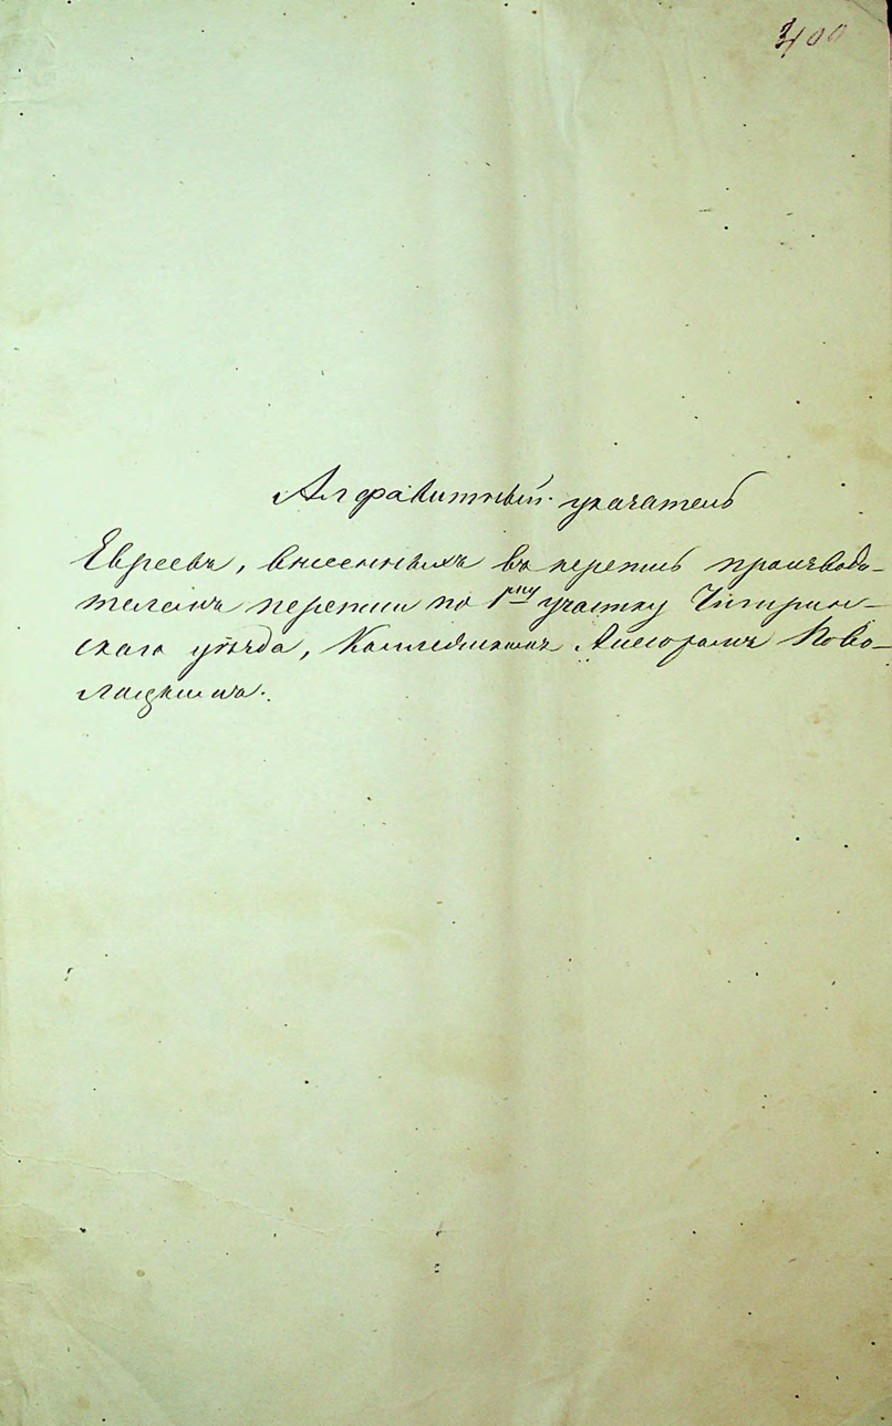 400
Алфавитный указатель
Евреевъ, внесенныхъ въ перепись производи-
телемъ переписи по 1му участку Чигирин-
скаго уѣзда, Коллежскимъ Ассесоромъ